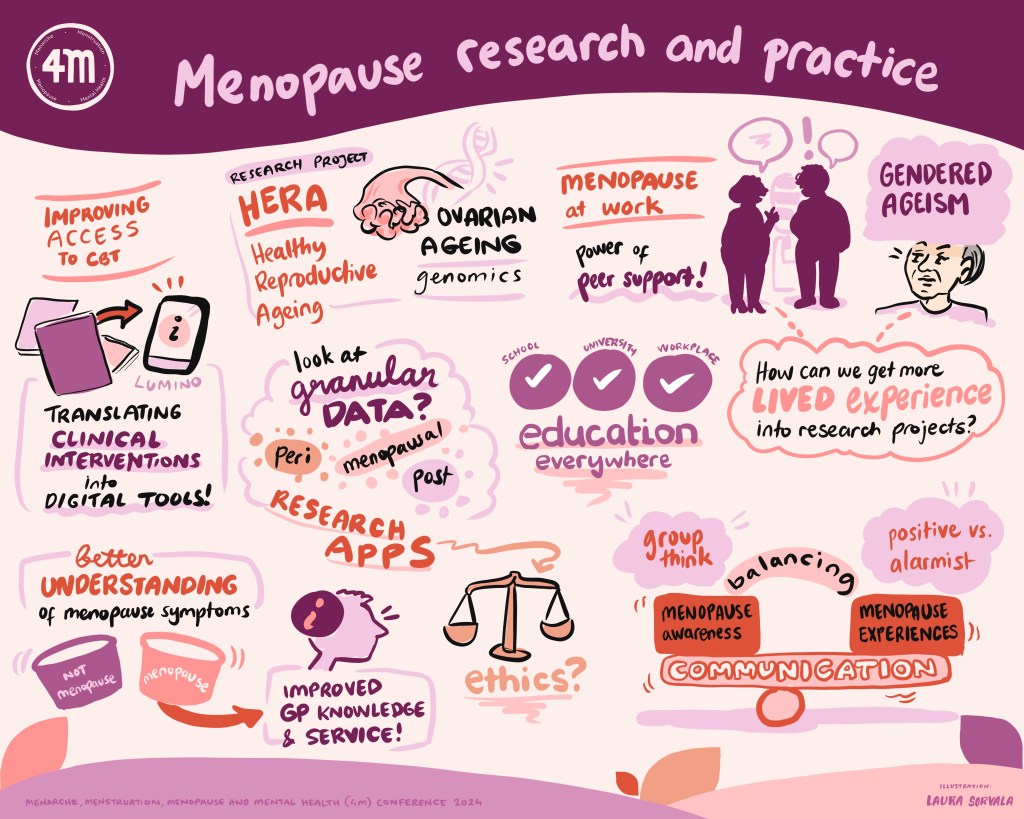 4m
Menarche
Menstruation
Menopause
Mental Health
Menopause research and practice
IMPROVING
ACCESS
TO CBT
LUMINO
TRANSLATING
CLINICAL
INTERVENTIONS
into
DIGITAL TOOLS!
RESEARCH PROJECT
HERA
Healthy
Reproductive
Ageing
OVARIAN
AGEING
genomics
MENOPAUSE
at work
power of
peer support!
GENDERED
AGEISM
look at
granular
DATA?
Peri
menopausal
post
RESEARCH
APPS
ethics?
SCHOOL
UNIVERSITY
WORKPLACE
education
everywhere
How can we get more
LIVED experience
into research projects?
better
UNDERSTANDING
of menopause symptoms
NOT
menopause
menopause
i
i
IMPROVED
GP KNOWLEDGE
& SERVICE!
group
think
positive vs.
alarmist
balancing
MENOPAUSE
awareness
MENOPAUSE
EXPERIENCES
COMMUNICATION
MENARCHE, MENSTRUATION, MENOPAUSE AND MENTAL HEALTH (4M) CONFERENCE 2024
ILLUSTRATION:
LAURA SORVALA